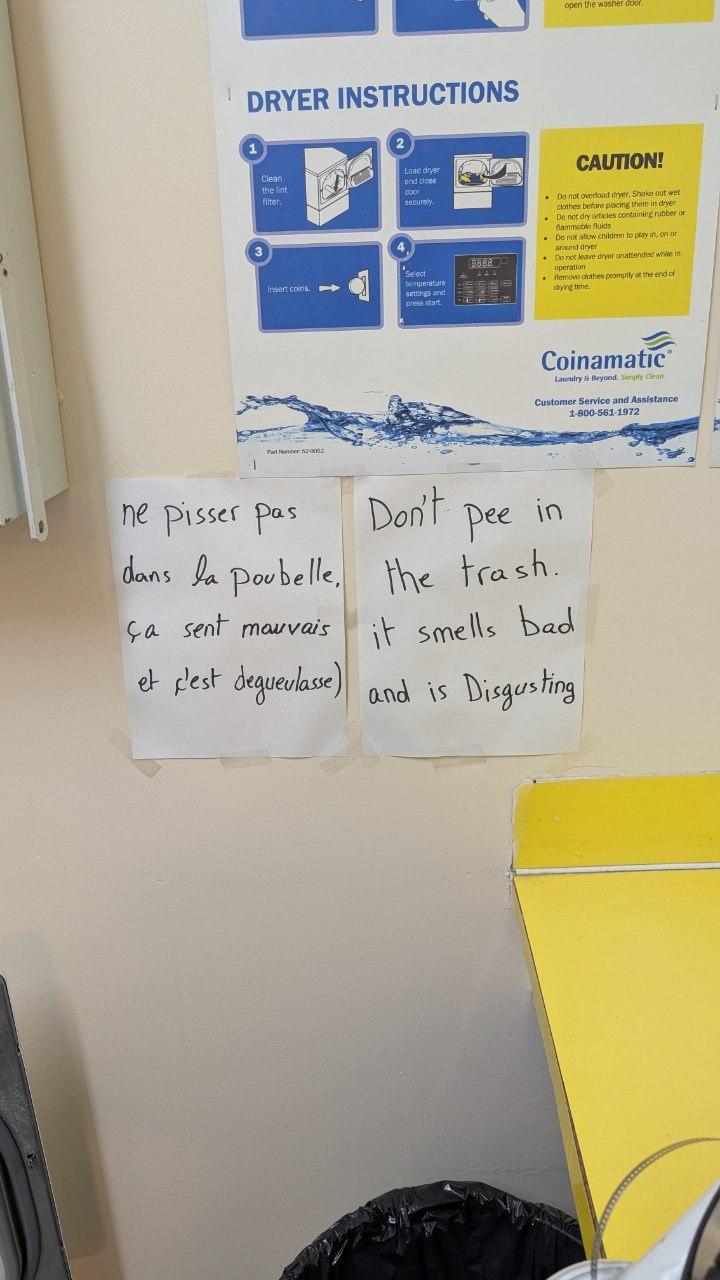 open the washer door.
DRYER INSTRUCTIONS
1
Clean
the lint
filter.
2
Load dryer
and close
door
securely.
3
Insert coins.
4
Select
temperature
settings and
press start.
CAUTION!
• Do not overload dryer. Shake out wet
clothes before placing them in dryer
• Do not dry articles containing rubber or
flammable fluids
• Do not allow children to play in, on or
around dryer
• Do not leave dryer unattended while in
operation
• Remove clothes promptly at the end of
drying time.
Coinamatic®
Laundry & Beyond. Simply Clean.
Customer Service and Assistance
1-800-561-1972
Part Number: 52-9052
ne pisser pas
dans la poubelle,
ça sent mauvais
et ç'est degueulasse)
Don't pee in
the trash.
it smells bad
and is Disgusting